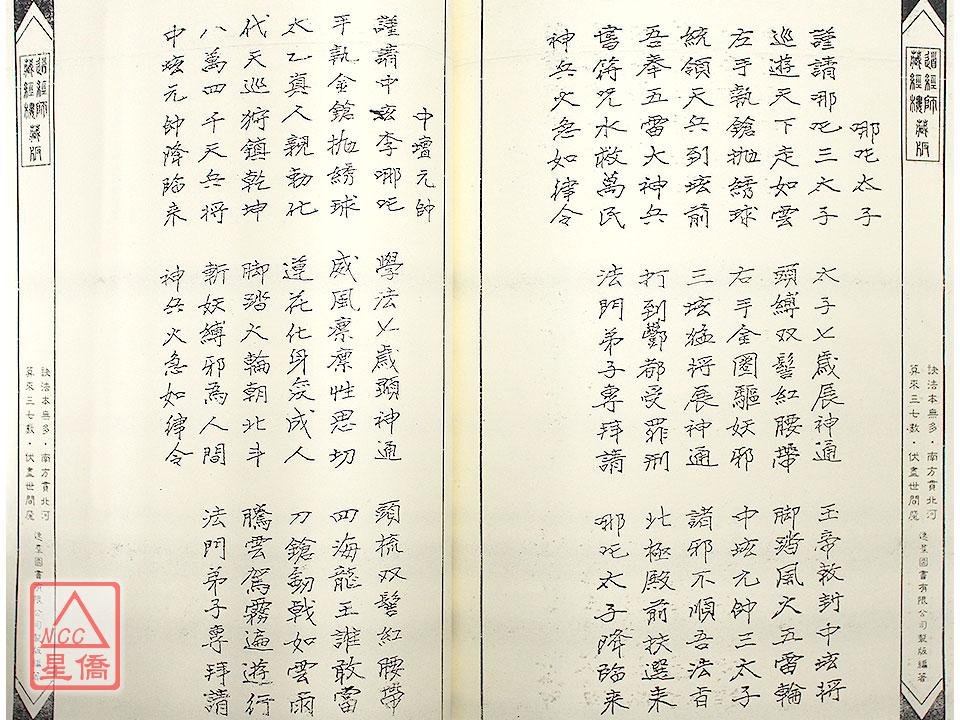 道經師
藏經樓
藏版
訣法本無多・南方貫北河
算來三七數・伏盡世間魔
逸群圖書有限公司製版編著
哪吒太子
謹請哪吒三太子　太子七歲展神通　玉帝敕封中垓將
巡遊天下走如雲　頭縛双髻紅腰帶　脚踏風火五雷輪
左手執鎗抛綉球　右手金圈驅妖邪　中垓元帥三太子
統領天兵到垓前　三垓猛將展神通　諸邪不順吾法旨
吾奉五雷大神兵　打到酆都受罪刑　北極殿前扶選来
書符咒水救萬民　法門弟子專拜請　哪吒太子降臨来
神兵火急如律令
中壇元帥
謹請中垓李哪吒　學法七歲顕神通　頭梳双髻紅腰帶
手執金鎗抛綉球　威風凛凛性思切　四海龍王誰敢當
太乙真人親勅化　蓮花化身変成人　刀鎗劍戟如雲雨
代天巡狩鎮乾坤　脚踏火輪朝北斗　騰雲駕霧遍遊行
八萬四千天兵將　斬妖縛邪為人間　法門弟子專拜請
中垓元帥降臨来　神兵火急如律令
道經師
藏經樓
藏版
訣法本無多・南方貫北河
算來三七數・伏盡世間魔
逸群圖書有限公司製版編著
NCC
星僑